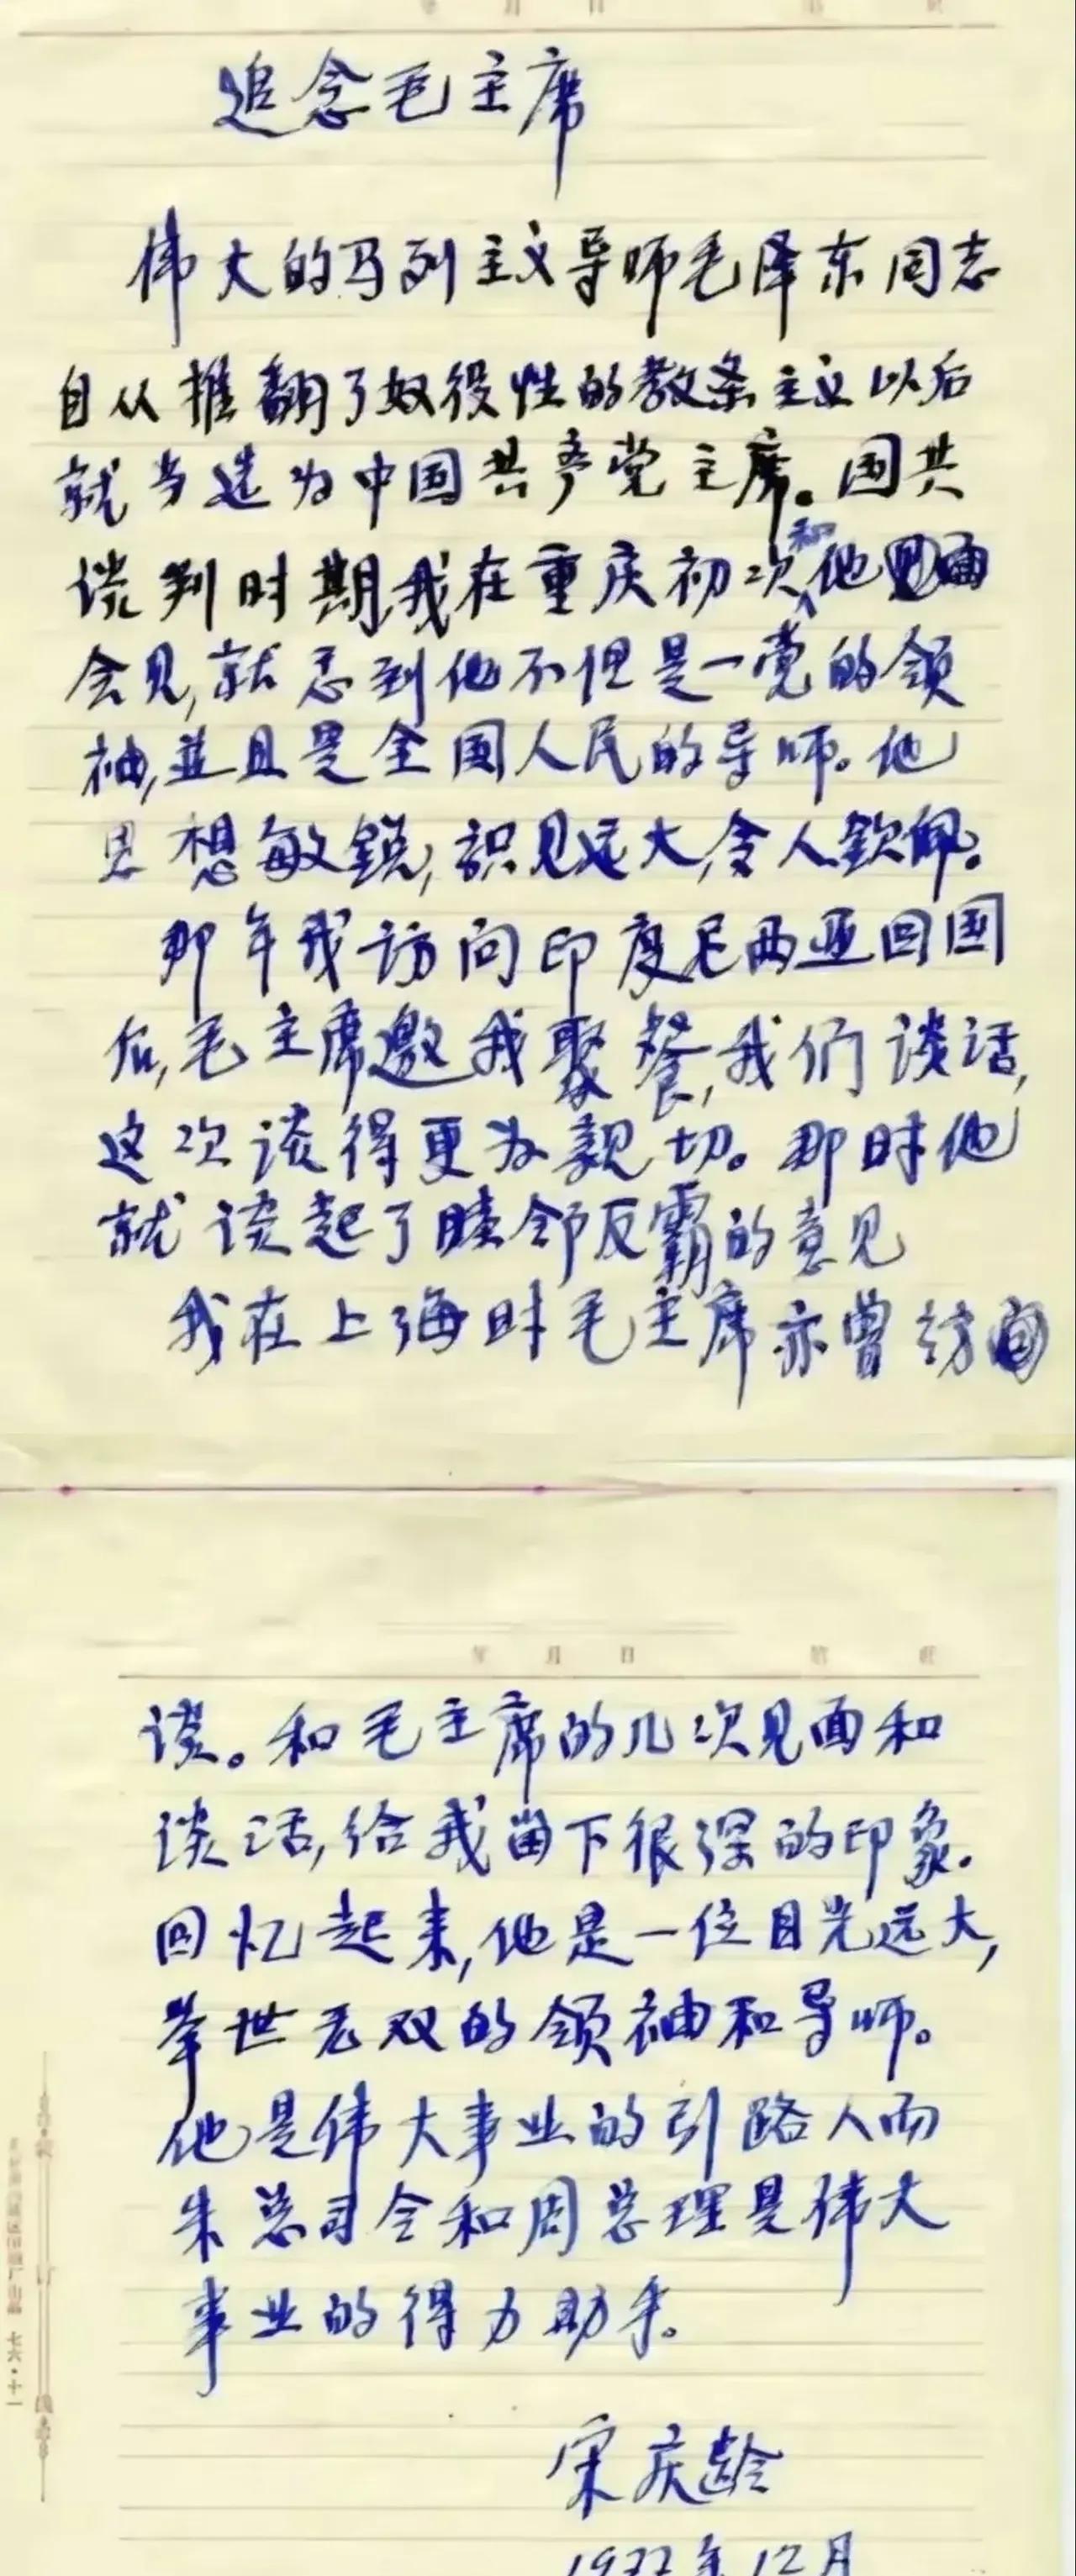 年 月 日
追念毛主席
伟大的马列主义导师毛泽东同志
自从推翻了奴役性的教条主义以后
就当选为中国共产党主席。国共
谈判时期,我在重庆初次和他
会见,就感到他不但是一党的领
袖,並且是全国人民的导师。他
思想敏锐,识见远大,令人钦佩。
那年我访问印度尼西亚回国
后,毛主席邀我聚餐,我们谈话,
这次谈得更为亲切。那时他
就谈起了睦邻反霸的意见
我在上海时毛主席亦曾访
年 月 日
谈。和毛主席的几次见面和
谈话,给我留下很深的印象。
回忆起来,他是一位目光远大,
举世无双的领袖和导师。
他是伟大事业的引路人而
朱总司令和周总理是伟大
事业的得力助手。
宋庆龄
1977年12月
七六·十一